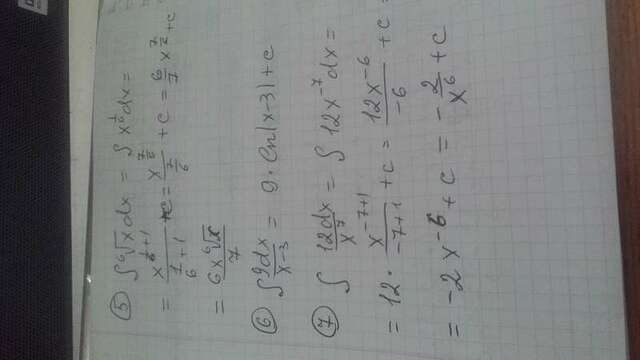 ⑤ ∫ ⁶√x dx = ∫ x^(1/6) dx =
= x^(1/6+1) / (1/6+1) + c = x^(7/6) / (7/6) + c = 6/7 x^(7/6) + c
= 6x ⁶√x / 7
⑥ ∫ 9dx / x-3 = 9 · ln(x-3) + c
⑦ ∫ 12dx / x^7 = ∫ 12x^-7 dx =
= 12 · x^(-7+1) / (-7+1) + c = 12x^-6 / -6 + c =
= -2x^-6 + c = - 2/x^6 + c